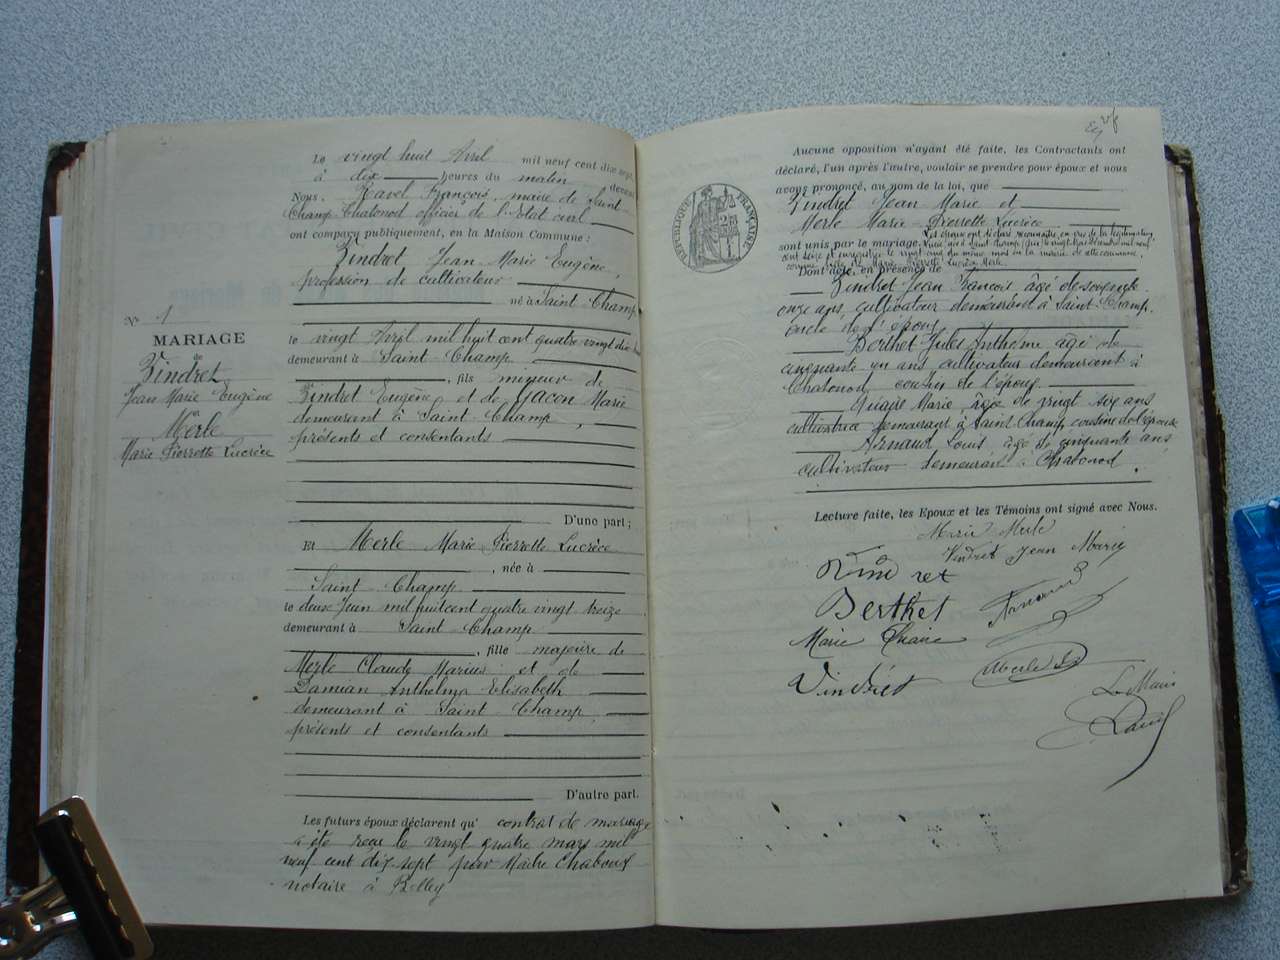 N° 1
MARIAGE
de
Vindret
Jean Marie Eugène
et
Merle
Marie Pierrette Lucrèce
Le vingt huit Avril mil neuf cent dix sept
à dix heures du matin devant
Nous, Ravel François, maire de Saint-
Champ-Chatonod officier de l'état civil
ont comparu publiquement, en la Maison Commune :
Vindret Jean Marie Eugène,
profession de cultivateur
né à Saint Champ
le vingt Avril mil huit cent quatre vingt dix
demeurant à Saint-Champ
, fils mineur de
Vindret Eugène et de Jacon Marie
demeurant à Saint Champ,
présents et consentants
D'une part ;
Et Merle Marie Pierrette Lucrèce
, née à
Saint Champ
le deux Juin mil huit cent quatre vingt treize
demeurant à Saint Champ
, fille majeure de
Merle Claude Marius et de
Damian Anthelmie Elisabeth
demeurant à Saint Champ,
présents et consentants
D'autre part.
Les futurs époux déclarent qu' contrat de mariage
a été reçu le vingt quatre mars mil
neuf cent dix sept par Maître Chaboux
notaire à Belley
Aucune opposition n'ayant été faite, les Contractants ont
déclaré, l'un après l'autre, vouloir se prendre pour époux et nous
avons prononcé, au nom de la loi, que
Vindret Jean-Marie et
Merle Marie-Pierrette Lucrèce
sont unis par le mariage. Les époux ont déclaré reconnaître, en vue de la légitimation
RÉPUBLIQUE FRANÇAISE
Dont acte, en présence de
Vindret Jean François âgé de soixante
onze ans, cultivateur demeurant à Saint-Champ
oncle de l'époux
Berthet Jules Anthelme âgé de
cinquante un ans cultivateur demeurant à
Chatonod, cousin de l'époux
Marie, âgée de vingt six ans
cultivatrice demeurant à Saint Champ cousine de l'épouse
Arnaud Louis âgé de cinquante ans
cultivateur demeurant à Chatonod.
Lecture faite, les Epoux et les Témoins ont signé avec Nous.
Marie Merle
Vindret Jean Marie
Vindret
Berthet
Arnaud
Marie
Merle
Vindret
Le Maire
Ravel